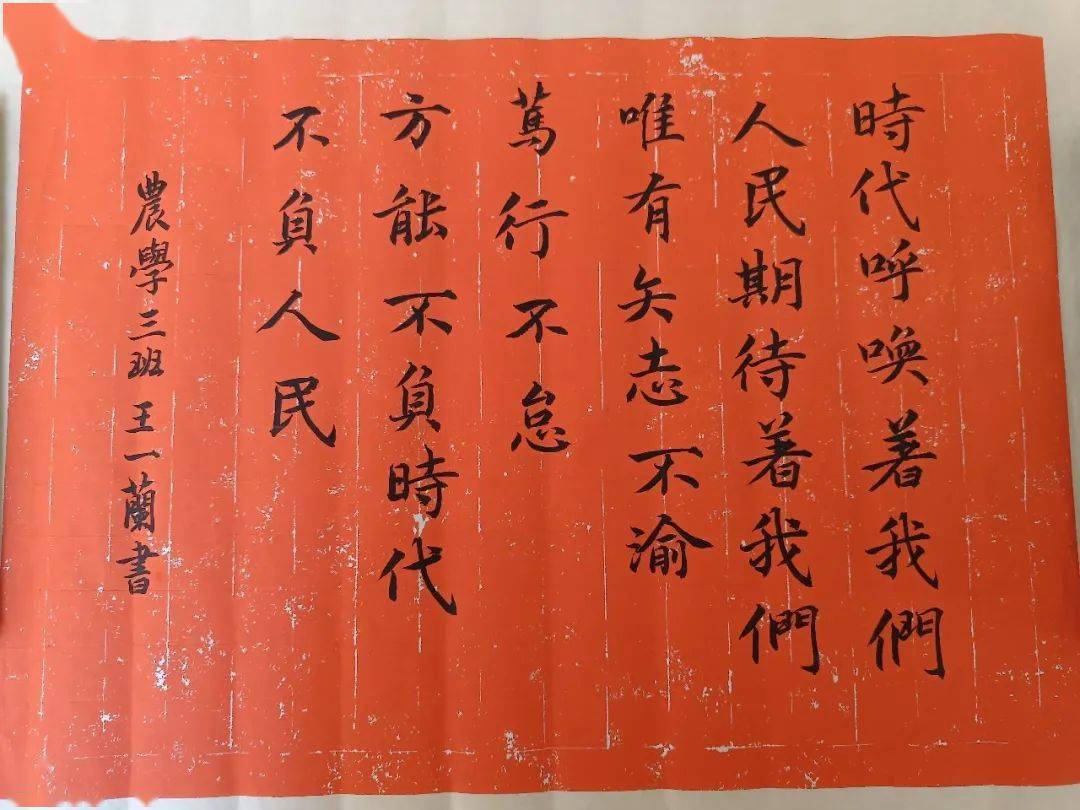 時代呼喚著我們
人民期待著我們
唯有矢志不渝
篤行不怠
方能不負時代
不負人民
農學三班王一蘭書